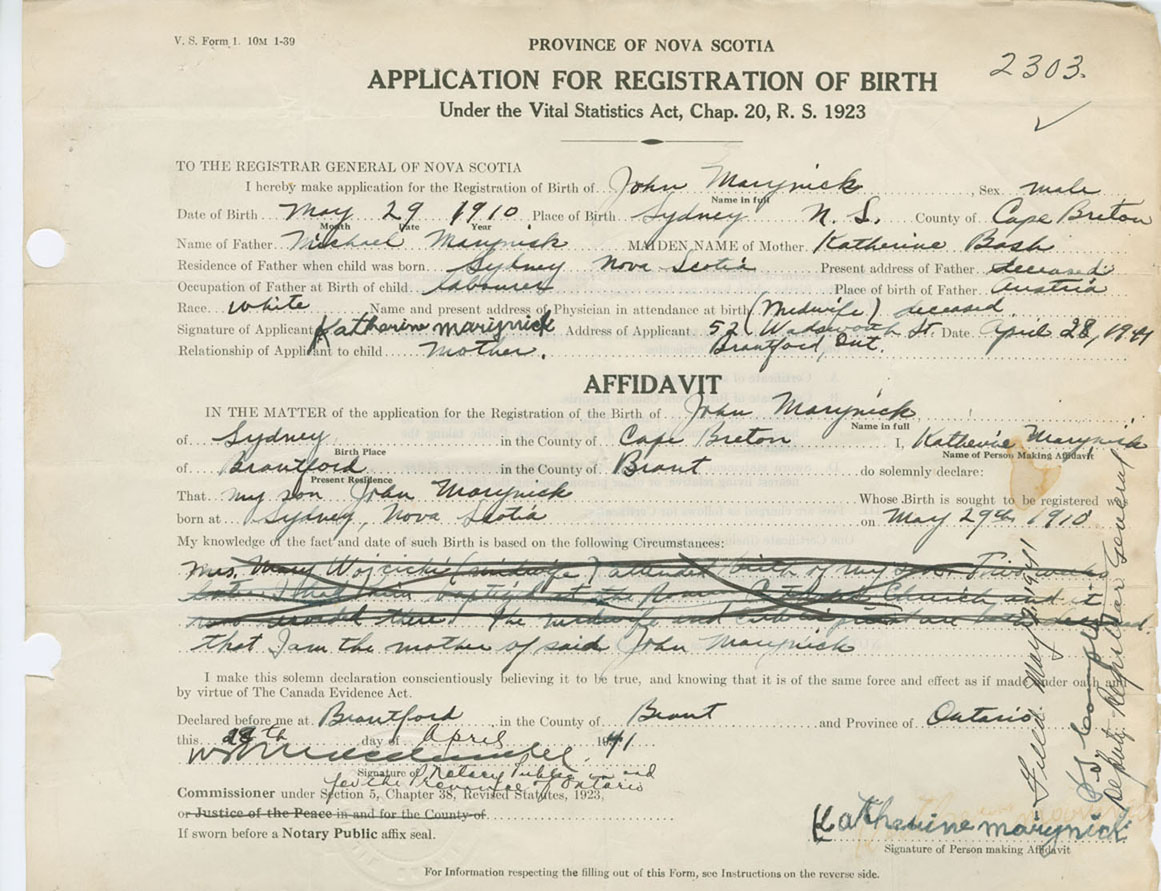 V. S. Form 1. 10M 1-39
PROVINCE OF NOVA SCOTIA
2303.
APPLICATION FOR REGISTRATION OF BIRTH
Under the Vital Statistics Act, Chap. 20, R. S. 1923
TO THE REGISTRAR GENERAL OF NOVA SCOTIA
I hereby make application for the Registration of Birth of John Marynick, Sex male
Name in full
Date of Birth May 29 1910 Place of Birth Sydney N. S. County of Cape Breton
Month Date Year
Name of Father Michael Marynick MAIDEN NAME of Mother Katherine Bash
Residence of Father when child was born Sydney Nova Scotia Present address of Father deceased
Occupation of Father at Birth of child labourer Place of birth of Father Austria
Race white Name and present address of Physician in attendance at birth (Midwife) deceased
Signature of Applicant Katherin marynick Address of Applicant 52 Wadsworth St. Date April 28, 1941
Relationship of Applicant to child mother. Brantford, Ont.
AFFIDAVIT
IN THE MATTER of the application for the Registration of the Birth of John Marynick,
Name in full
of Sydney in the County of Cape Breton I, Katherine Marynick
Birth Place Name of Person Making Affidavit
of Brantford in the County of Brant do solemnly declare:
Present Residence
That my son John Marynick Whose Birth is sought to be registered was
born at Sydney, Nova Scotia on May 29th 1910
My knowledge of the fact and date of such Birth is based on the following Circumstances:
Mrs. Mary (midwife) attended birth of my son. Two
at the Church and it
there. The midwife and are
that I am the mother of said John Marynick
I make this solemn declaration conscientiously believing it to be true, and knowing that it is of the same force and effect as if made under oath and
by virtue of The Canada Evidence Act.
Declared before me at Brantford in the County of Brant and Province of Ontario
this 28th day of April 1941
Signature of Notary Public in and
for the Province of Ontario
Commissioner under Section 5, Chapter 38, Revised Statutes, 1923,
or Justice of the Peace in and for the County of
If sworn before a Notary Public affix seal.
Katherine marynick
Signature of Person making Affidavit
For Information respecting the filling out of this Form, see Instructions on the reverse side.
Filed May 1941
Deputy Registrar General